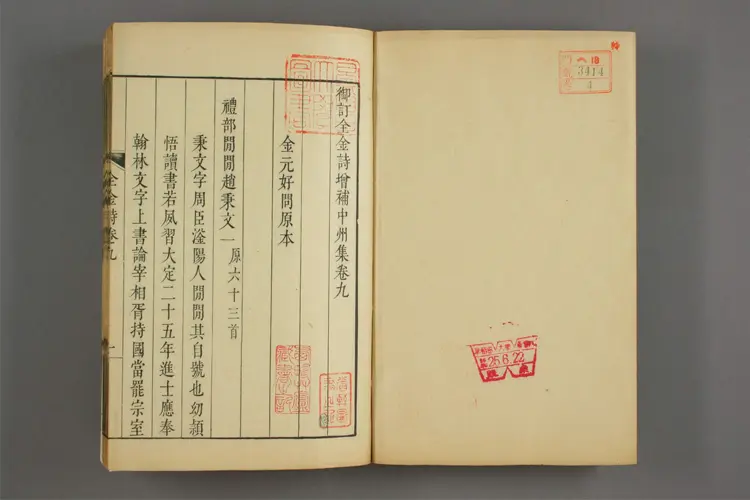 御訂全金詩增補中州集卷九
金元好問原本
禮部閒閒趙秉文一 原六十三首
秉文字周臣滏陽人閒閒其自號也幼穎
悟讀書若夙習大定二十五年進士應奉
翰林文字上書論宰相胥持國當罷宗室
全金詩卷九
一
3414
4
25.6.22